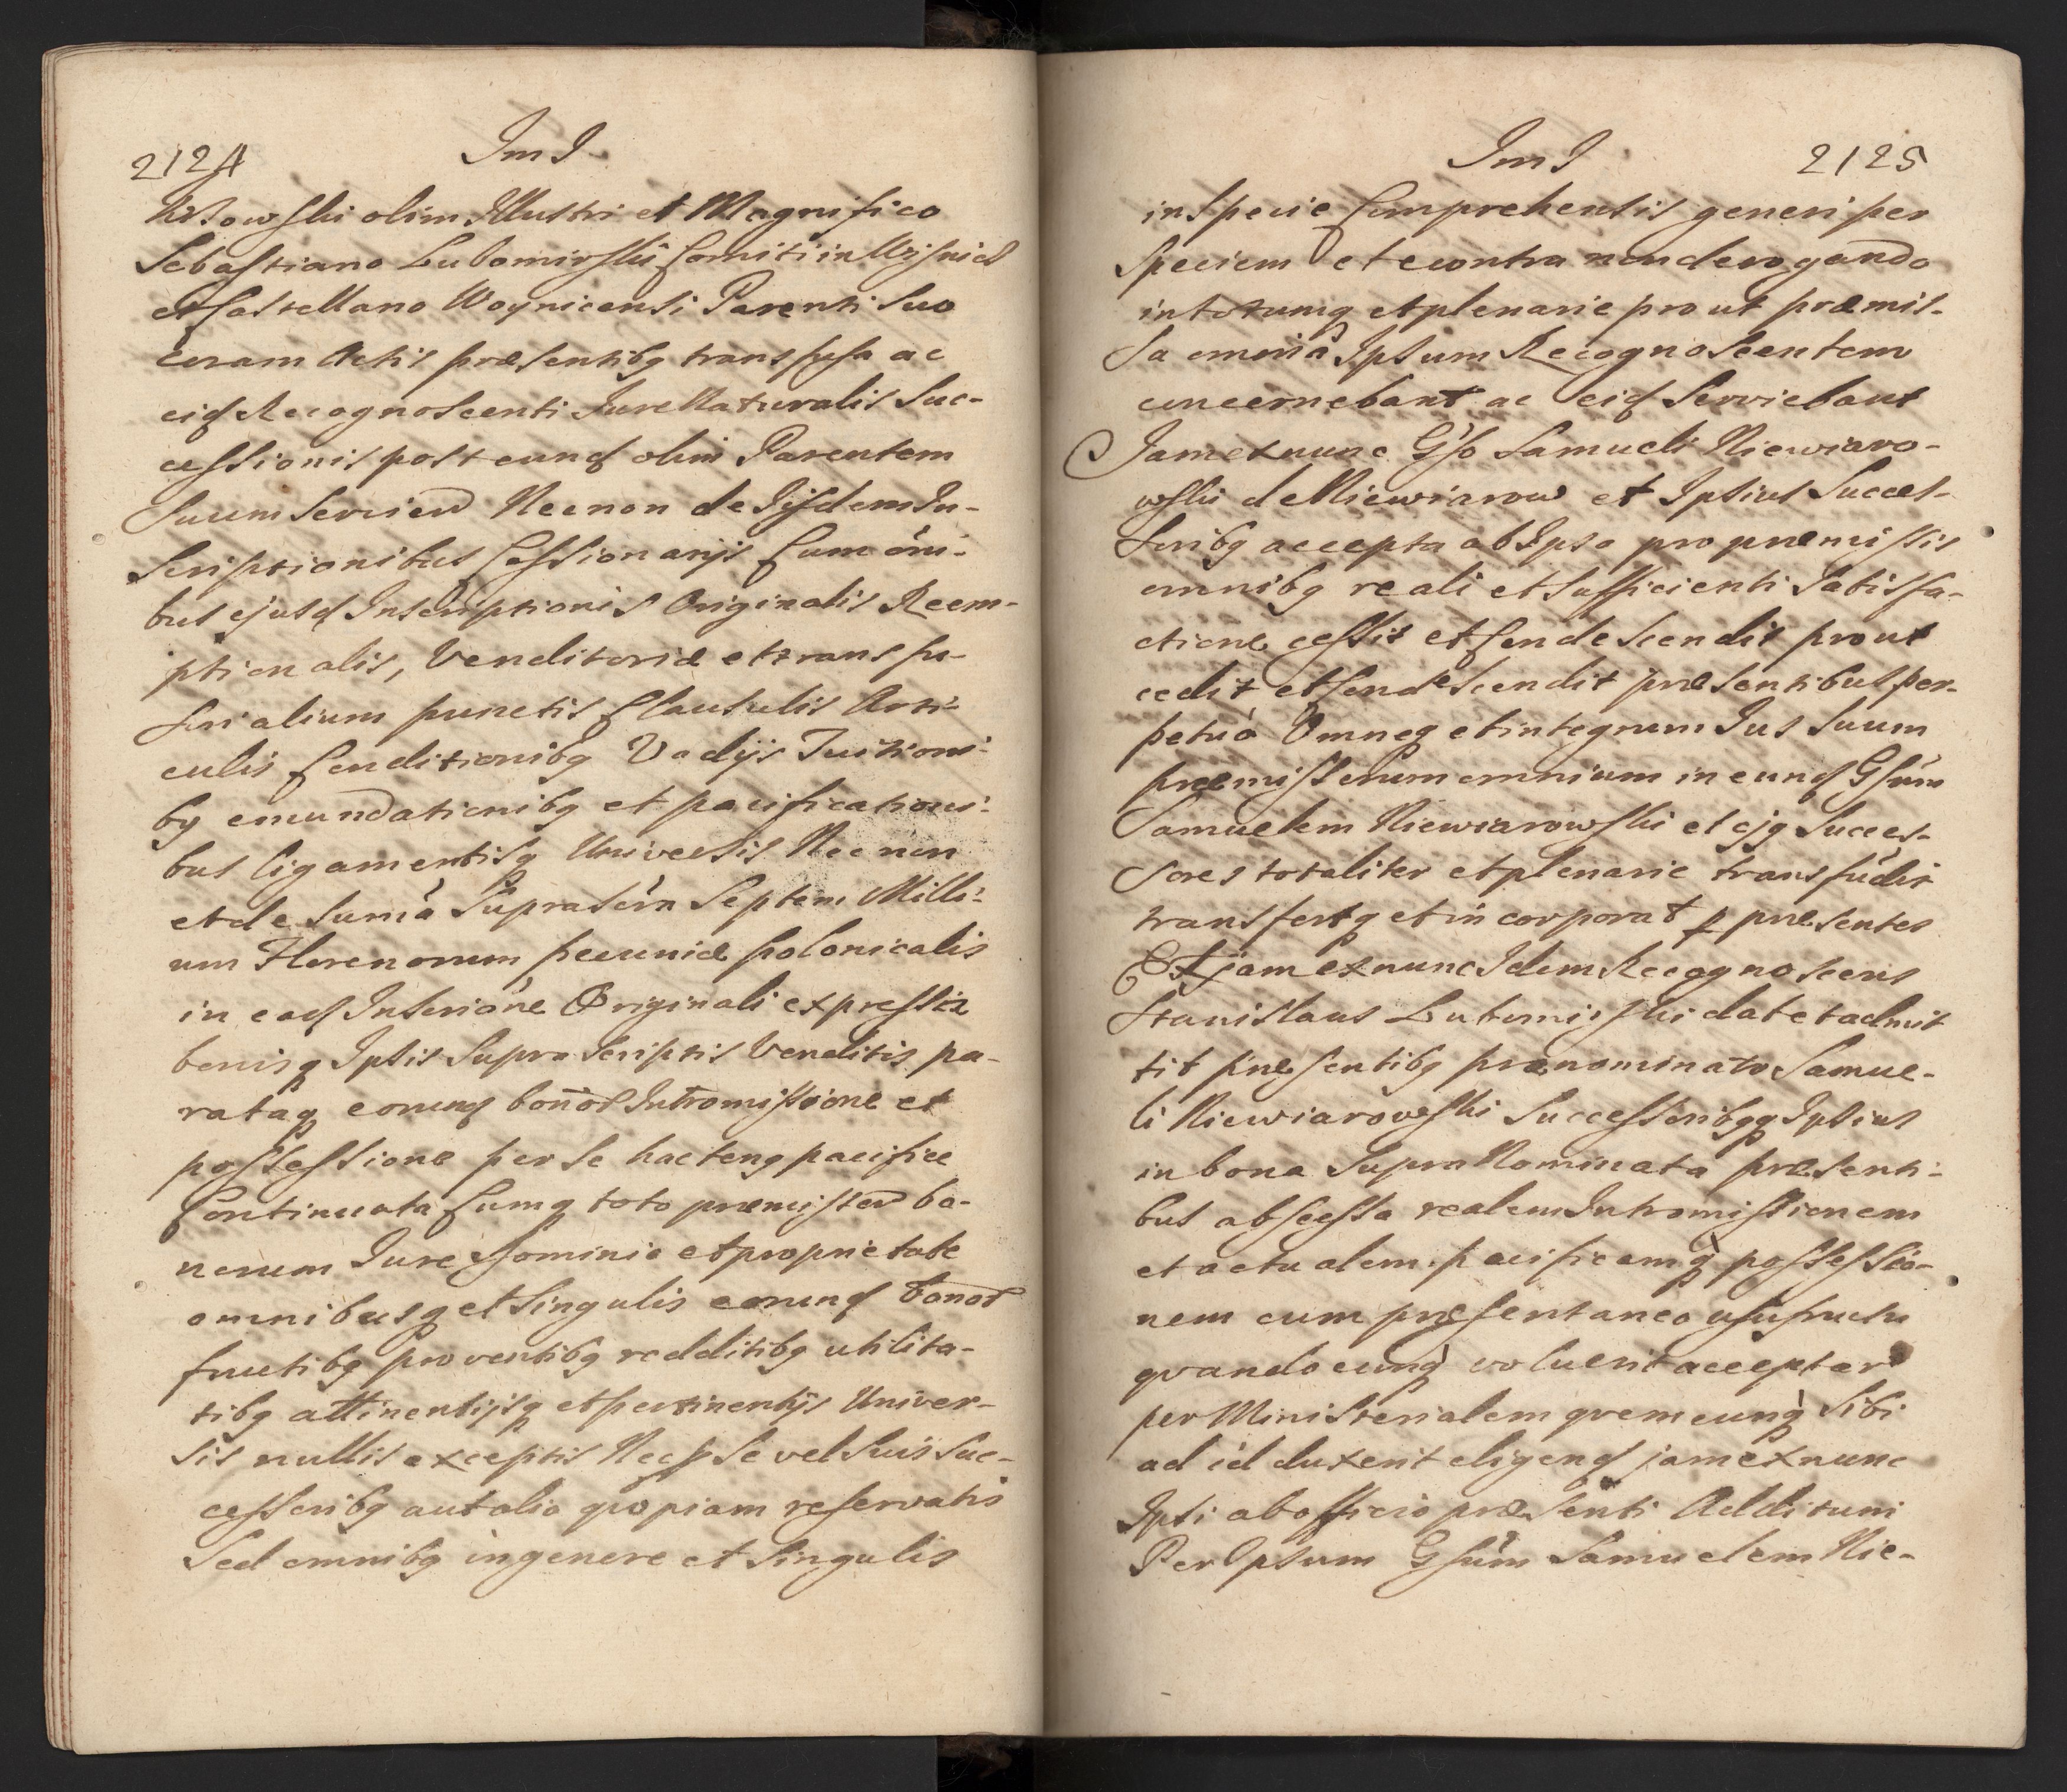 2124
Im I
Witowski olim Illustri et Magnifico
Sebastiano Lubomirski Comiti in Wisnicz
et Castellano Woynicensi Parenti Suo
coram Actis præsentibq transfusa ac
eid Recognoscenti Jure Naturalis Suc-
cessionis post eund olim Parentem
Suum Servien Necnon de Iisdem In-
scriptionibus Cessionarijs Cum om̃i-
bus ejusd Inscriptionis Originalis Reem-
ptionalis, Venditoriæ et transfu-
sorialium punctis Clausulis Arti-
culis Conditionibq Vadijs Tuitioni-
bq emundationibq et pacificationi-
bus ligamentisq Universis Necnon
et de Sum̃a Suprascr̃a Septem Milli-
um Florenorum pecuniæ polonicalis
in ead Inscrip̃one Originali expressa
bonisq Ipsis Suprascriptis Venditis pa-
rataq eorund bonor Intromissione et
possessione per Se hactenq pacifice
Continuata Cumq toto præmissor bo-
norum Jure Dominio et proprietate
omnibusq et Singulis eorund bonor
fructibq proventibq redditibq utilita-
tibq attinentijsq et pertinentijs Univer-
sis nullis exceptis Neq Se vel Suis Suc-
cessoribq aut alio quopiam reservatis
Sed omnibq in genere et Singulis
Im I
2125
in Specie Comprehensis generi per
Speciem et e contra non derogando
in totumq et plenarie prout præmis-
sa omnia Ipsum Recognoscentem
concernebant ac eid Serviebant
Jam ex nunc Gso Samueli Niewiaro-
wski de Niewiarow et Ipsius Succes-
soribq accepta ab Ipso pro præmissis
omnibq reali et Sufficienti Satisfa-
ctione cessit et Condescendit prout
cedit et Condescendit præsentibus per-
petuo Omneq et integrum Jus Suum
præmissorum omnium in eund Gsum
Samuelem Niewiarowski et ejq Succes-
sores totaliter et plenarie transfudit
transfertq et incorporat p præsentes
Et jam ex nunc Idem Recognoscens
Stanislaus Lubomirski dat et admit
tit præsentibq prænominato Samue-
li Niewiarowski Successoribqq Ipsius
in bona Supra Nominata præsenti-
bus abscessa realem Intromissionem
et actualem pacificamq possessio-
nem cum præsentaneo usufructu
quandocunq voluerit acceptar
per Ministerialem quemcunq Sibi
ad id duxerit eligend jam ex nunc
Ipsi ab officio præsenti Additum
Per Ipsum Gsum Samuelem Nie-